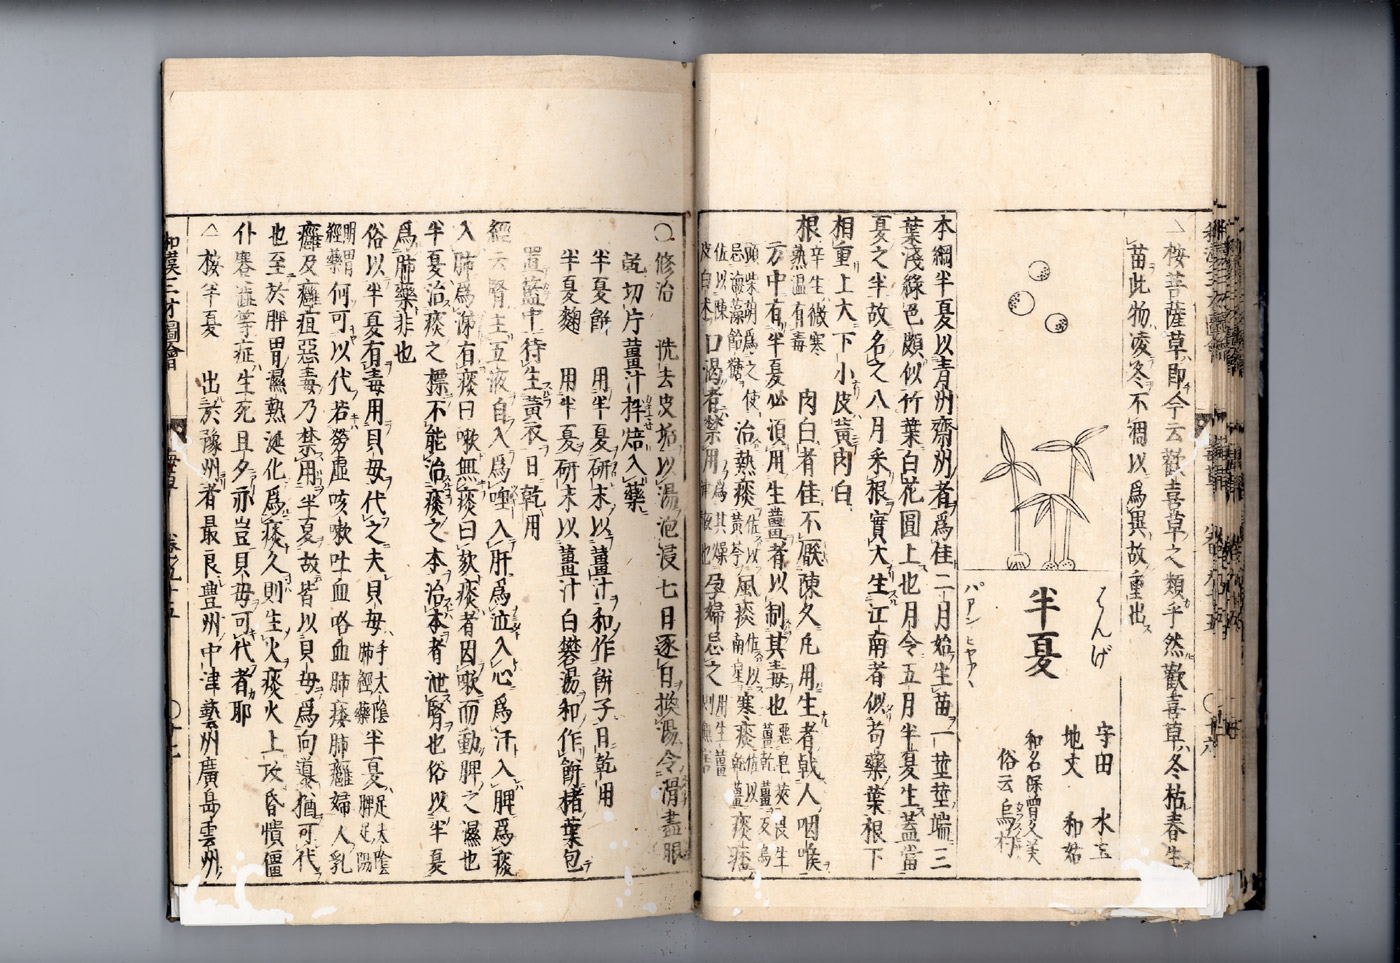 △按菩薩草即今云歡喜草之類乎然歡喜草冬枯春生
苗此物凌冬不凋以爲異故重出
はんげ
半夏
パアン ヒヤアヽ
守田 水玉
地文 和姑
和名保曾久美
俗云烏柄
本綱半夏以青州齋州者爲佳二月始生苗一莖莖端三
葉淺綠色頗似竹葉白花圓上也月令五月半夏生蓋當
夏之半故名之八月采根實大生江南者似芍藥葉根下
相重上大下小皮黃肉白
根 辛生微寒
熱温有毒
肉白者佳不厭陳久凡用生者戟人咽喉
方中有半夏必須用生薑者以制其毒也
惡皂莢畏生
薑乾薑反烏
頭柴胡爲之使
忌海藻飴糖
治熱痰 佐以黃芩 風痰 佐以南星 寒痰 佐以乾薑 痰痞
佐以陳
皮白朮
口渴者禁用 孕婦忌之 用生薑則無害
○修治 洗去皮垢以湯泡浸七日逐日換湯令滑盡眼
乾切片薑汁拌焙入藥
半夏餠 用半夏研末以薑汁和作餠子日乾用
半夏麴 用半夏研末以薑汁白礬湯和作餠楮葉包
置籃中待生黃衣日乾用
經云腎主五液自入爲唾入肝爲泣入心爲汗入脾爲痰
入肺爲涕有痰曰嗽無痰曰欬痰者因嗽而動脾之濕也
半夏治痰之標不能治痰之本治本者泄腎也俗以半夏
爲肺藥非也
俗以半夏有毒用貝母代之夫貝母 手太陰肺經藥 半夏 足太陰脾足陽
明胃經藥 何可以代若勞虚咳嗽吐血咯血肺痿肺癰婦人乳
癰及癰疽惡毒乃禁用半夏故皆以貝母爲向導猶可代
也至於脾胃濕熱涎化爲痰久則生火痰火上攻昏憒僵
仆蹇澁等症生死且夕亦豈貝母可代者耶
△按半夏 出於豫州者最良豊州中津藝州廣島雲州
和漢三才圖會